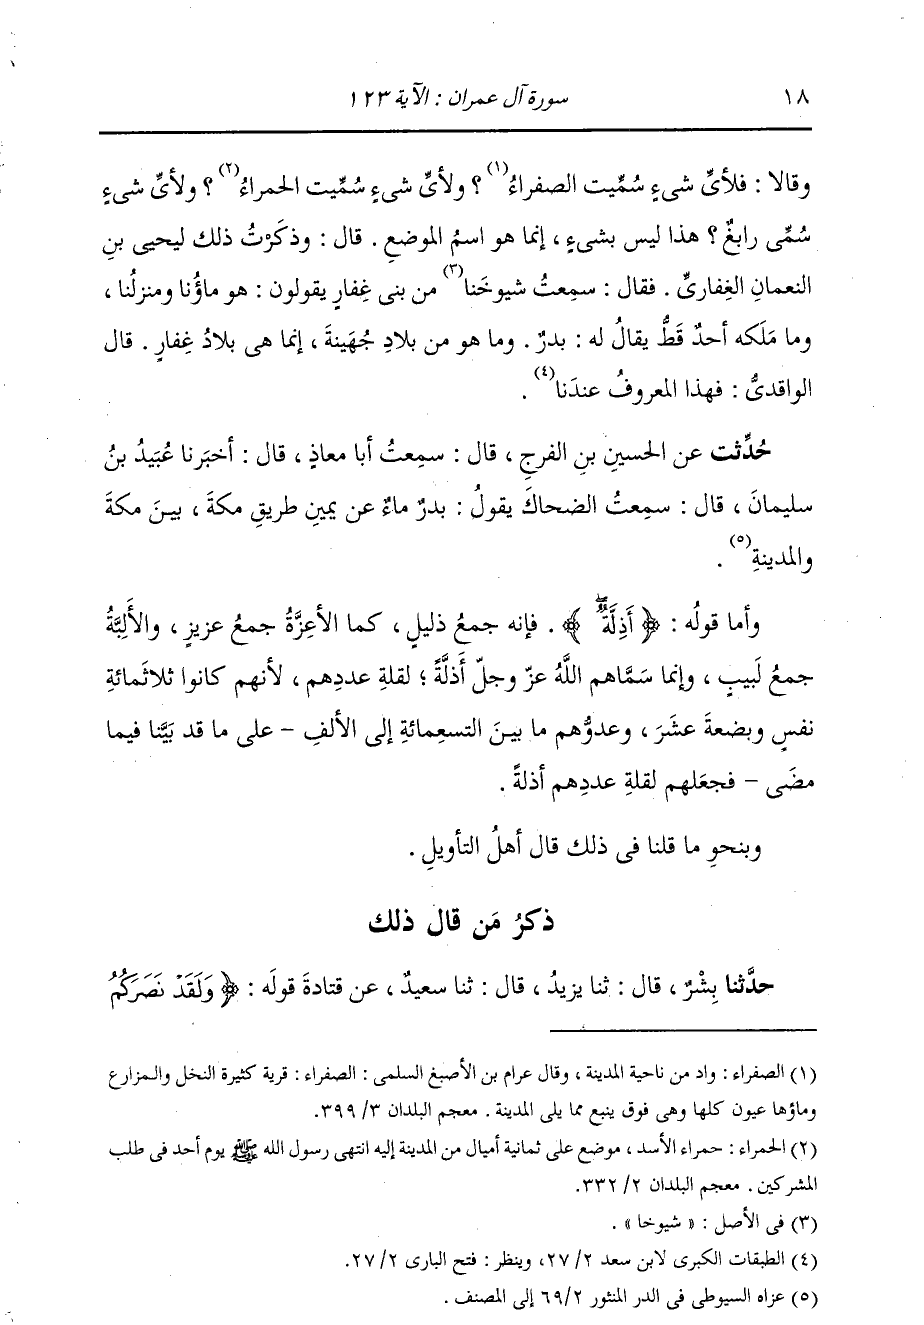 ١٨ سورة آل عمران : الآية ١٢٣
وقالا : فلأىِّ شىءٍ سُمِّيت الصفراءُ(١) ؟ ولأىِّ شىءٍ سُمِّيت الحمراءُ(٢) ؟ ولأىِّ شىءٍ
سُمِّى رابغٌ ؟ هذا ليس بشىءٍ ، إنما هو اسمُ الموضعِ . قال : وذكَرْتُ ذلك ليحيى بنِ
النعمانِ الغِفارىِّ . فقال : سمِعتُ شيوخَنا(٣) من بنى غِفارٍ يقولون : هو ماؤُنا ومنزلُنا ،
وما مَلَكه أحدٌ قَطُّ يقالُ له : بدرٌ . وما هو من بلادِ جُهَينةَ ، إنما هى بلادُ غِفارٍ . قال
الواقدىُّ : فهذا المعروفُ عندَنا(٤) .
حُدِّثت عن الحسينِ بنِ الفرجِ ، قال : سمِعتُ أبا معاذٍ ، قال : أخبَرنا عُبَيدُ بنُ
سليمانَ ، قال : سمِعتُ الضحاكَ يقولُ : بدرٌ ماءٌ عن يمينِ طريقِ مكةَ ، بينَ مكةَ
والمدينةِ(٥) .
وأما قولُه : ﴿ أَذِلَّةٌ ﴾ . فإنه جمعُ ذليلٍ ، كما الأعِزَّةُ جمعُ عزيزٍ ، والأَلِبَّةُ
جمعُ لَبيبٍ ، وإنما سَمَّاهم اللَّهُ عزّ وجلّ أَذلَّةً ؛ لقلةِ عددِهم ، لأنهم كانوا ثلاثَمائةِ
نفسٍ وبضعةَ عشَرَ ، وعدوُّهم ما بينَ التسعِمائةِ إلى الألفِ – على ما قد بَيَّنا فيما
مضَى – فجعَلهم لقلةِ عددِهم أذلةً .
وبنحوِ ما قلنا فى ذلك قال أهلُ التأويلِ .
ذكرُ مَن قال ذلك
حدَّثنا بِشْرٌ ، قال : ثنا يزيدُ ، قال : ثنا سعيدٌ ، عن قتادةَ قولَه : ﴿ وَلَقَدْ نَصَرَكُمُ
(١) الصفراء : واد من ناحية المدينة ، وقال عرام بن الأصبغ السلمى : الصفراء : قرية كثيرة النخل والمزارع
وماؤها عيون كلها وهى فوق ينبع مما يلى المدينة . معجم البلدان ٣/ ٣٩٩.
(٢) الحمراء : حمراء الأسد ، موضع على ثمانية أميال من المدينة إليه انتهى رسول الله ﷺ يوم أحد فى طلب
المشركين . معجم البلدان ٢/ ٣٣٢.
(٣) فى الأصل : « شيوخا » .
(٤) الطبقات الكبرى لابن سعد ٢/ ٢٧، وينظر : فتح البارى ٢/ ٢٧.
(٥) عزاه السيوطى فى الدر المنثور ٢/ ٦٩ إلى المصنف .